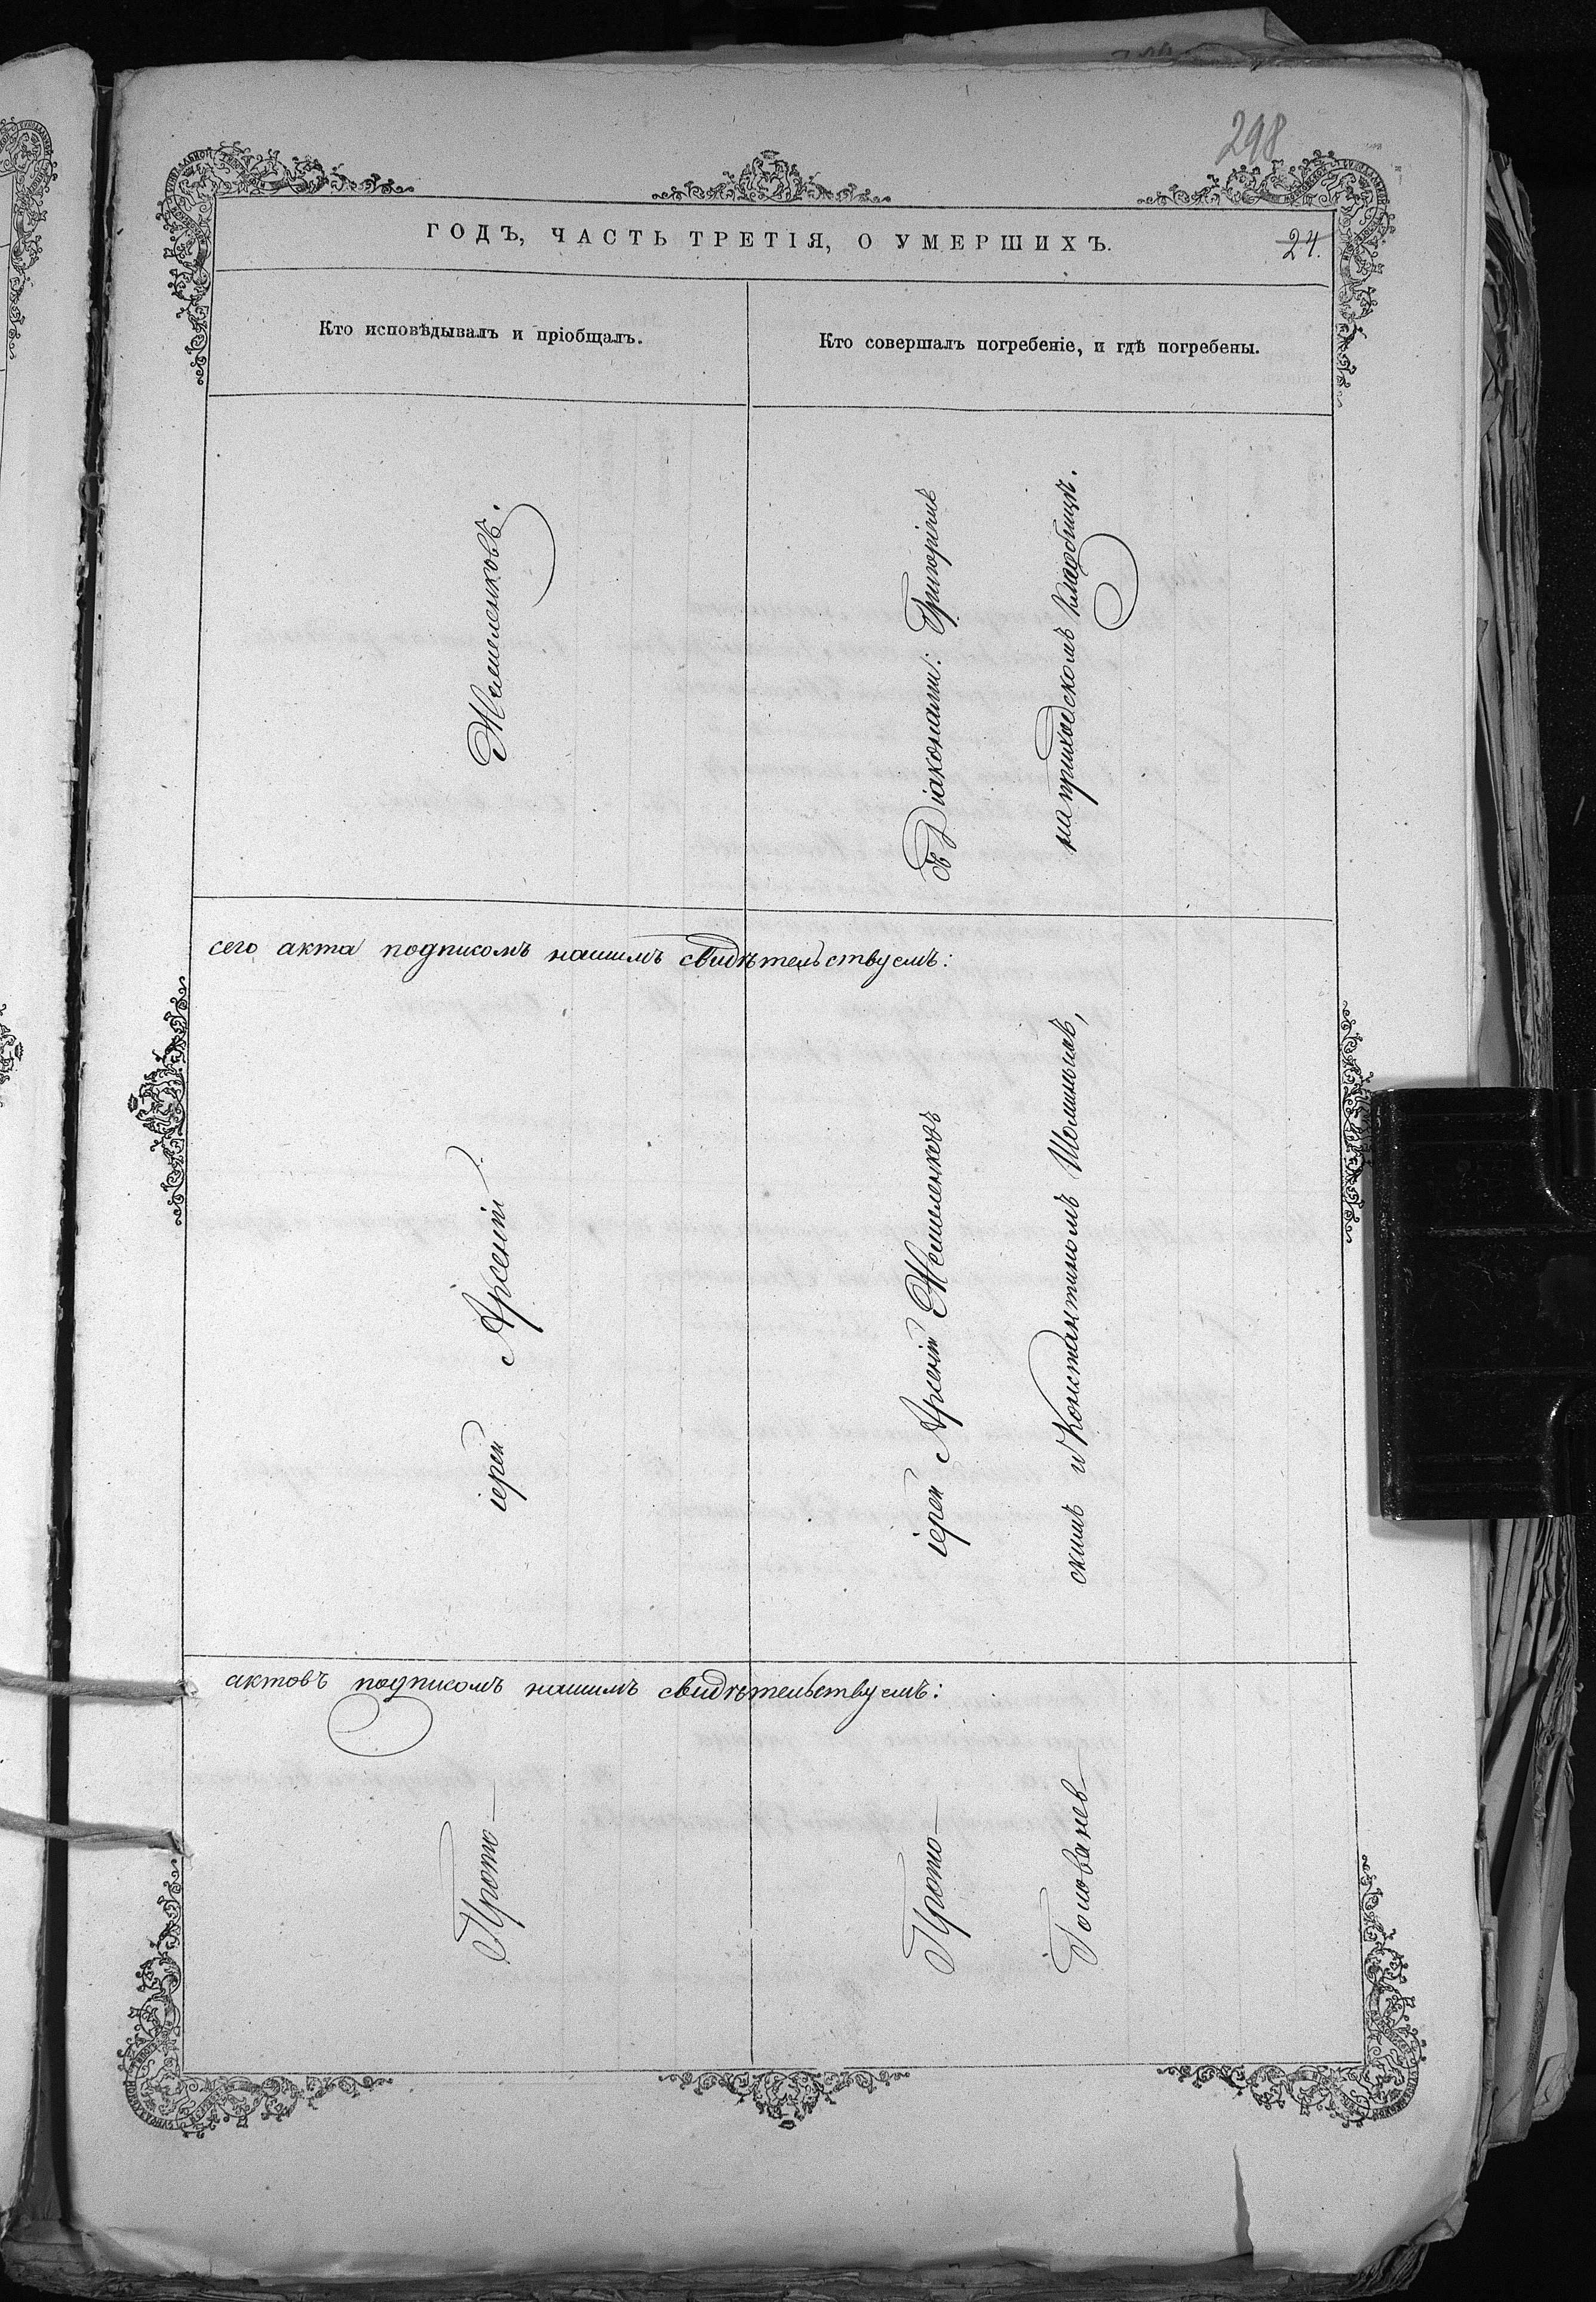 298
ГОДЪ, ЧАСТЬ ТРЕТІЯ, О УМЕРШИХЪ.
24.
Кто исповѣдывалъ и пріобщалъ.
Кто совершалъ погребеніе, и гдѣ погребены.
Прото-
іерей Арсеній
Мешеленковъ.
Прото-
іерей Арсеній Мешеленковъ
съ Діаконами: Григоріемъ
Голованев-
скимъ и Константиномъ Шолинымъ,
на приходскомъ кладбищѣ.
сего акта подписомъ нашимъ свидѣтельствуемъ:
актовъ подписомъ нашимъ свидѣтельствуемъ: